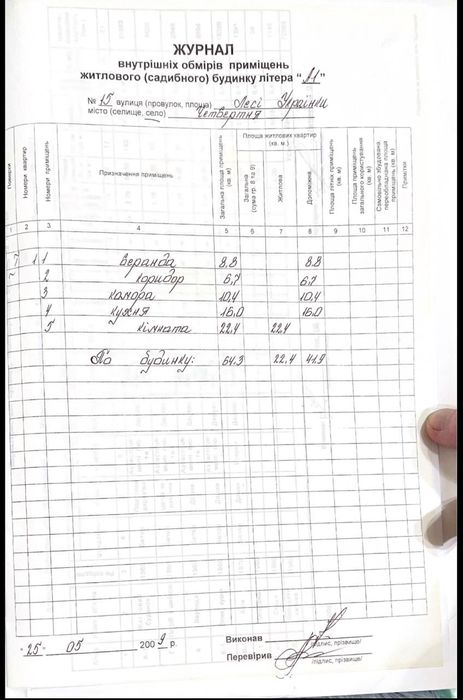 ЖУРНАЛ
внутрішніх обмірів приміщень
житлового (садибного) будинку літера "А1"
№ 15 вулиця (провулок, площа) Лесі Українки
місто (селище, село) Четвертня
Поверхи
Номери квартир
Номери приміщень
Призначення приміщень
Загальна площа приміщень (кв. м)
Площа житлових квартир (кв. м.)
Загальна (сума гр. 8 та 9)
Житлова
Допоміжна
Площа літніх приміщень (кв. м)
Площа приміщень загального користування (кв. м)
Самовільно збудована, переобладнана площа приміщень (кв. м)
Примітки
1 2 3 4 5 6 7 8 9 10 11 12
1 1 Веранда 8,8 8.8
2 коридор 6,7 6.7
3 комора 10,4 10.4
4 кухня 16.0 16.0
5 кімната 22,4 22,4
По будинку: 64.3 22,4 41.9
"25" 05 2009 р.
Виконав
/підпис, прізвище/
Перевірив
/підпис, прізвище/